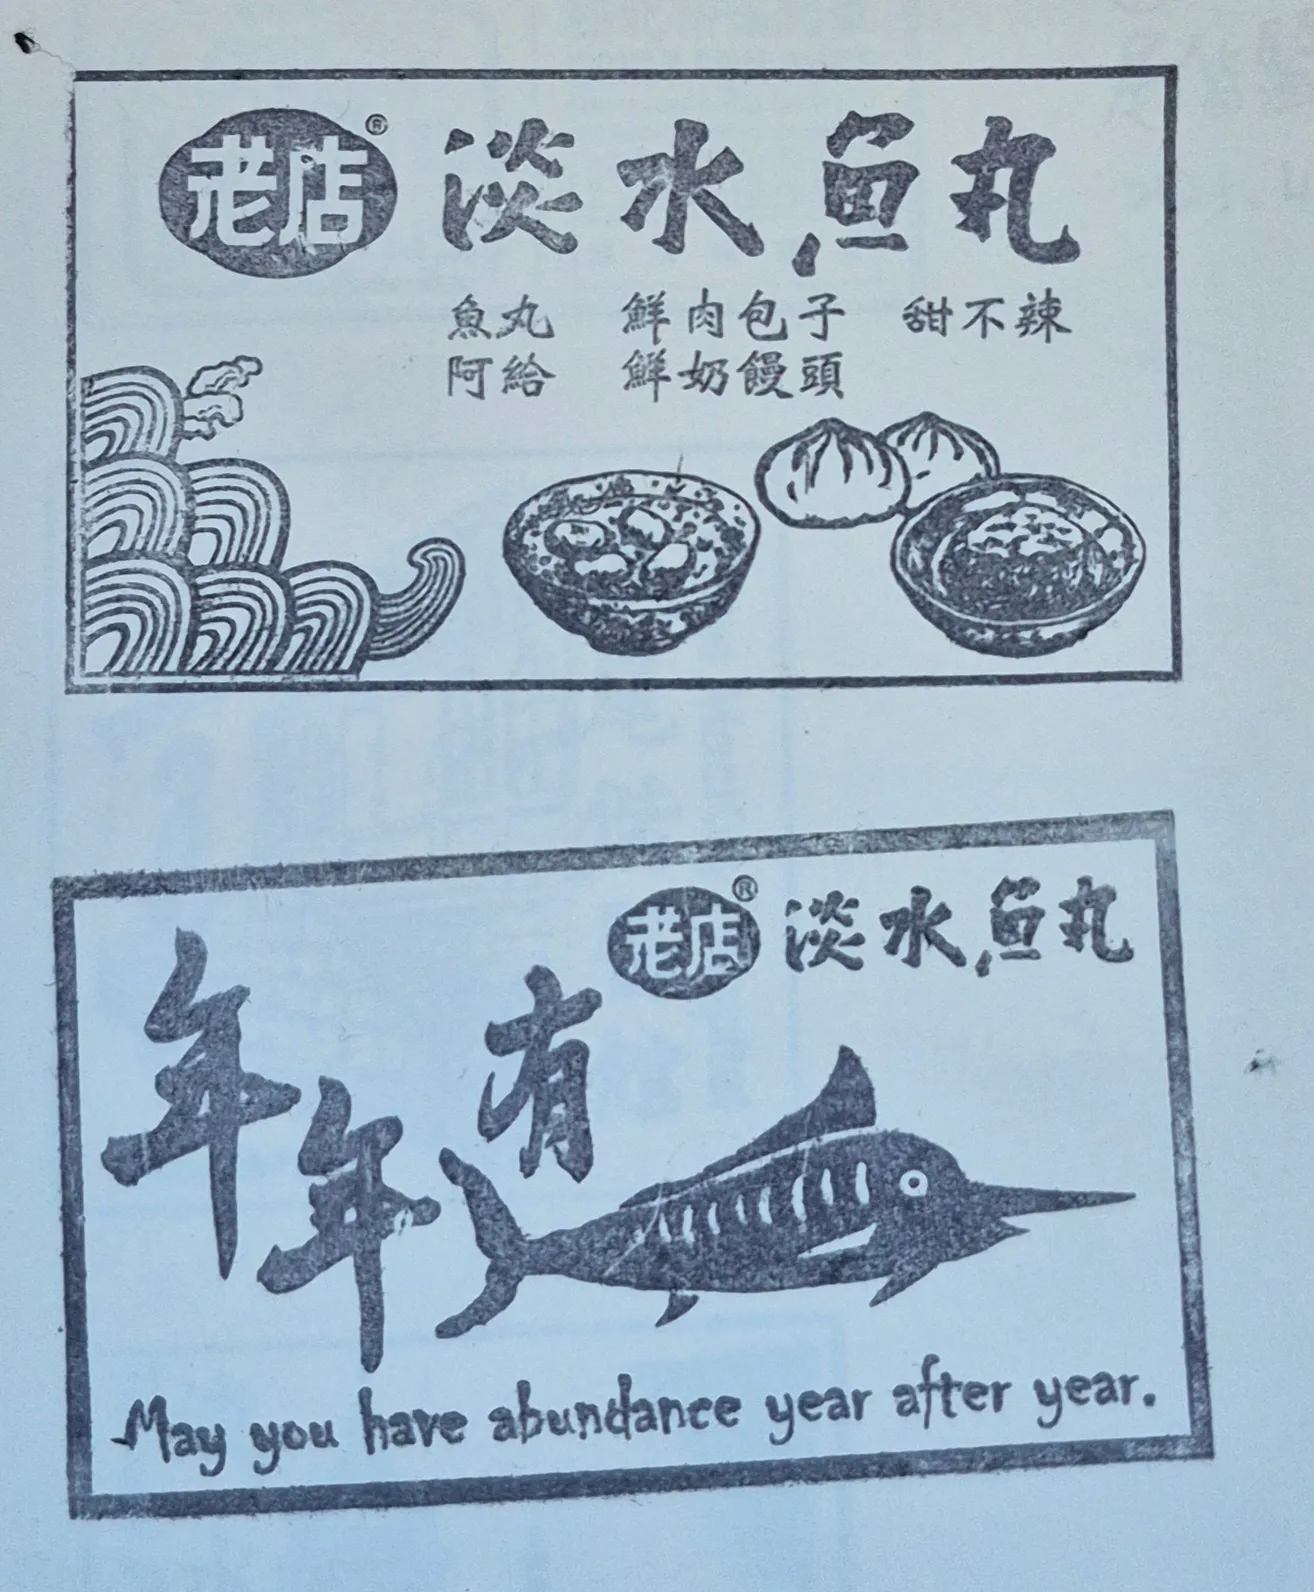 老店® 淡水魚丸
魚丸 鮮肉包子 甜不辣
阿給 鮮奶饅頭
老店® 淡水魚丸
年年有
May you have abundance year after year.